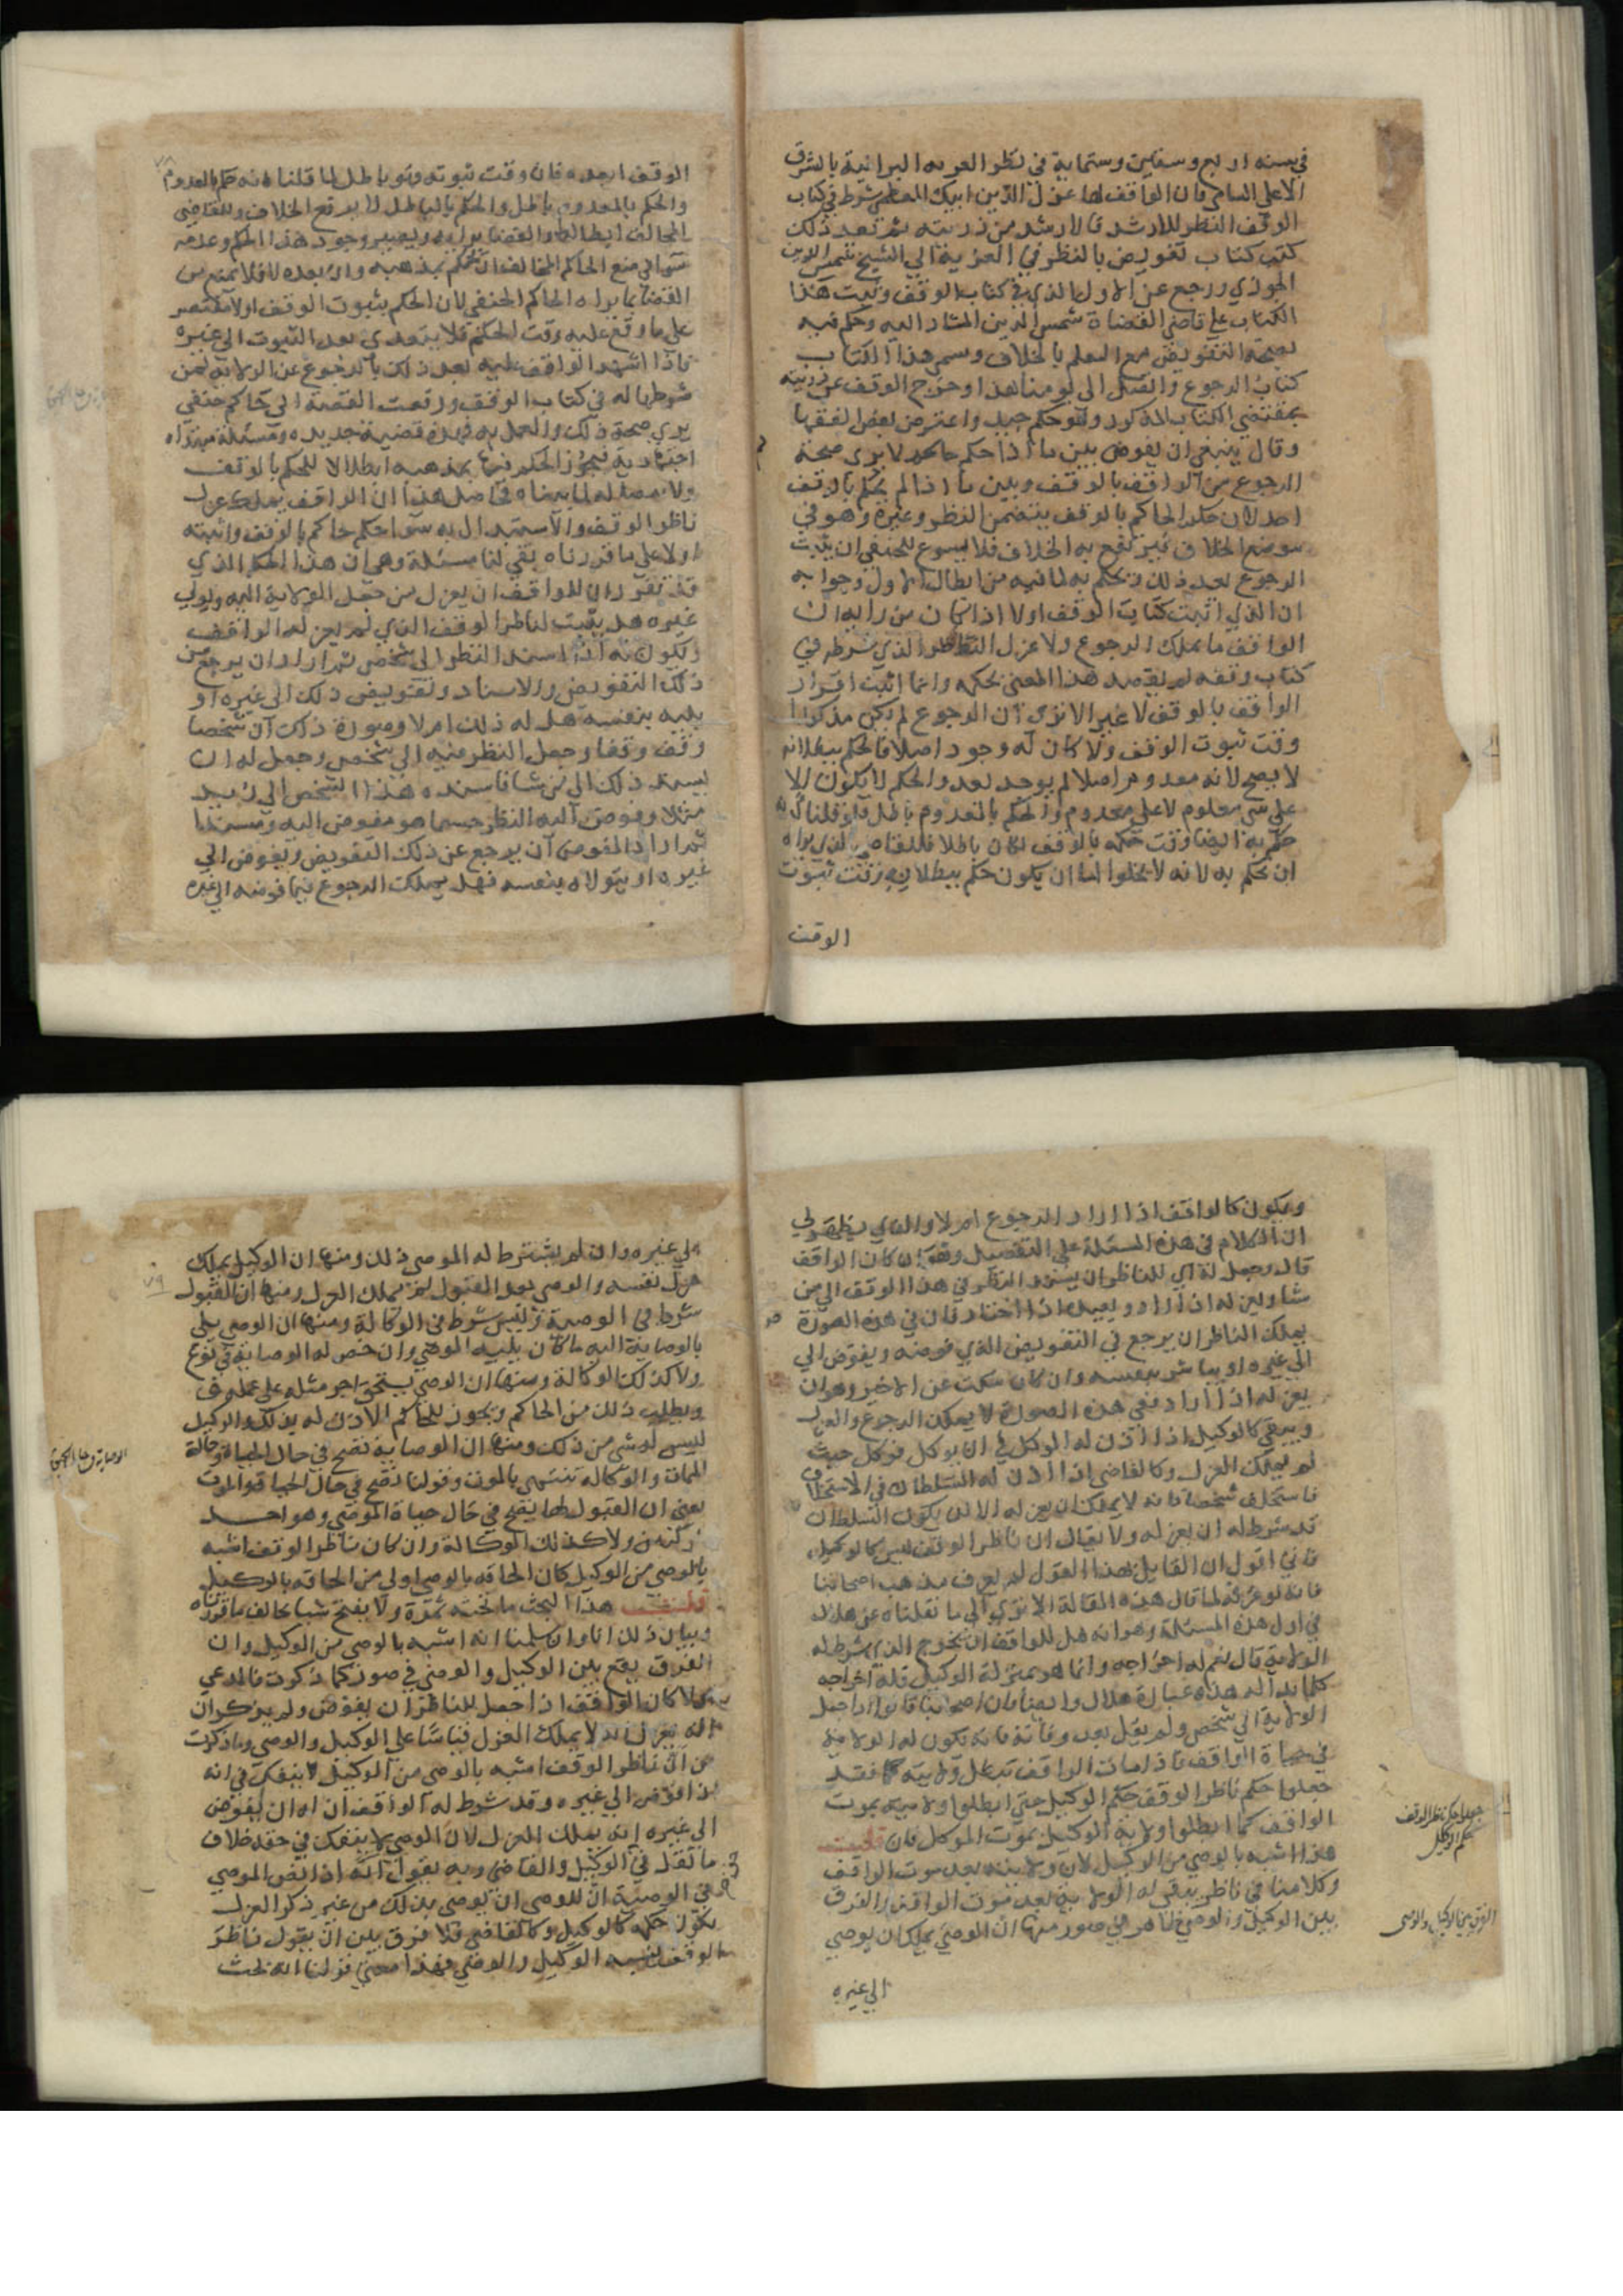 في سنه اربع وستين وستماية في نظر العزيه البرانية بالشرق
الاعلى فان الواقف لها عز الدين ايبك المعظمي شرط في كتاب
الوقف النظر للارشد فالارشد من ذريته ثم بعد ذلك
كتب كتاب تفويض بالنظر في العزيه الي الشيخ شمس الدين
الجوزي ورجع عن الاول الذي في كتاب الوقف وثبت هذا
الكتاب على قاضي القضاة شمس الدين المشار اليه وحكم فيه
بصحة التفويض مع العلم بالخلاف وسمى هذا الكتاب
كتاب الرجوع والعمل الى يومنا هذا وخرج الوقف عن ذريته
بمقتضي الكتاب المذكور وهو حكم جيد واعترض بعض الفقها
وقال ينبغي ان يفرض بين ما اذا حكم حاكم لا يرى صحة
الرجوع من الواقف بالوقف وبين ما اذا لم يحكم بالوقف
احد لان حكم الحاكم بالوقف يتضمن النظر وغيره وهو في
موضع الخلاف فيرتفع به الخلاف فلا يسوغ للحنفي ان يثبت
الرجوع بعد ذلك ويحكم به لما فيه من ابطال الاول وجوابه
ان الذي اثبت كتاب الوقف اولا اذا كان من رايه ان
الواقف ما يملك الرجوع ولا عزل الناظر الذي شرطه في
كتاب وقفه لم يقصد هذا المعنى بحكمه وانما اثبت اقرار
الواقف بالوقف لا غير الا ترى ان الرجوع لم يكن مذكورا
وقت ثبوت الوقف ولا كان له وجود اصلا فالحكم ببطلانه
لا يصح لانه معدوم اصلا لم يوجد بعد والحكم لا يكون الا
على شي معلوم لا على معدوم والحكم بالمعدوم باطل ولو قلنا انه
حكم به ايضا وقت حكمه بالوقف لكان باطلا فللقاضي الذي يراه
ان يحكم به لانه لا يخلوا اما ان يكون حكم ببطلانه وقت ثبوت
الوقف
الوقف او بعده فان وقت ثبوته وهو باطل لما قلنا انه حكم بالمعدوم
والحكم بالمعدوم باطل والحكم بالباطل لا يرفع الخلاف وللقاضي
المخالف ابطاله والقضا برايه ويصير وجود هذا الحكم وعدمه
سوا في منع الحاكم المخالف ان يحكم بمذهبه وان بعده فلا يمنع من
القضا بما يراه الحاكم الحنفي لان الحكم بثبوت الوقف اولا مقتصر
على ما وقع عليه وقت الحكم فلا يتعدى بعد الثبوت الى غيره
فاذا اشهد الواقف عليه بعد ذلك بالرجوع عن الولاية لمن
شرطها له في كتاب الوقف ورفعت القصة الي حاكم حنفي
يرى صحة ذلك والعمل به فهذه قضية جديده ومسئلة مبتداه
اجتهادية فيجوز الحكم فيها بمذهبه ابطالا للحكم بالوقف
ولا مصادمة لما بيناه في اصل هذا ان الواقف يملك عزل
ناظر الوقف والاستبدال به سوا حكم حاكم بالوقف واثبته
اولا على ما قررناه بقي لنا مسئلة وهي ان هذا الحكم الذي
قد تقرر ان للواقف ان يعزل من جعل الولاية اليه ويولي
غيره هل يثبت لناظر الوقف الذي لم يعزله الواقف
ويكون له اذا اسند النظر الى شخص ثم اراد ان يرجع عن
ذلك التفويض والاسناد وتفويض ذلك الى غيره او
يليه بنفسه هل له ذلك ام لا وصورة ذلك ان شخصا
وقف وقفا وجعل النظر فيه الي شخص وجعل له ان
يسند ذلك الى من شا فاسنده هذا الشخص الي زيد
مثلا وفوض اليه النظر حسبما هو مفوض اليه ومسند
ثم اراد المفوض ان يرجع عن ذلك التفويض ويفوض الي
غيره او يتولاه بنفسه فهل يملك الرجوع فيما فوضه الى غيره
ويكون كالواقف اذا اراد الرجوع ام لا والذي يظهر لي
ان الكلام في هذه المسئلة على التفصيل وهو ان كان الواقف
قال وجعل له اي للناظر ان يسند النظر في هذا الوقف الي من
شا ولمن له اذا اراد ويعيده اذا اختار فان في هذه الصورة
يملك الناظر ان يرجع في التفويض الذي فوضه ويفوض الي
الي غيره او يباشر بنفسه وان كان سكت عن الاخير وهو ان
يعزله اذا اراد ففي هذه الصورة لا يملك الرجوع والعزل
ويبقى كالوكيل اذا اذن له الموكل في ان يوكل فوكل حيث
لم يملك العزل وكالقاضي اذا اذن له السلطان في الاستخلاف
فاستخلف شخصا فانه لا يملك ان يعزله الا ان يكون السلطان
قد شرط له ان يعزله ولا يقال ان ناظر الوقف ليس كالوكيل
فاني اقول ان القايل بهذا القول لم يعرف مذهب اصحابنا
فانه لو عرفه لما قال هذه المقالة الا ترى الي ما نقلناه عن هلال
في اول هذه المسئلة وهو انه هل للواقف ان يخرج الذي شرط له
الولاية قال نعم له اخراجه وانما هو بمنزلة الوكيل فله اخراجه
كلما بدا له هذه عبارة هلال وايضا فان اصحابنا قالوا اذا جعل
الولاية الي شخص ولم يقل بعد وفاته فانه تكون له الولاية
في حياة الواقف فاذا مات الواقف تبطل ولايته فقد
جعلوا حكم ناظر الوقف حكم الوكيل حتي ابطلوا ولايته بموت
الواقف كما ابطلوا ولاية الوكيل بموت الموكل فان قلت
هذا اشبه بالوصي من الوكيل لان ولايته بعد موت الواقف
وكلامنا في ناظر يبقى له الولاية بعد موت الواقف والفرق
بين الوكيل والوصي ظاهر في صور منها ان الوصي يملك ان يوصي
جعلوا حكم ناظر الوقف
حكم الوكيل
الفرق بين الوكيل والوصي
الي غيره
الي غيره وان لم يشترط له الموصي ذلك ومنها ان الوكيل يملك
عزل نفسه والوصي بعد القبول لم يملك العزل ومنها ان القبول
شرط في الوصية وليس شرط في الوكالة ومنها ان الوصي يلي
بالوصاية اليه ما كان يليه الموصي وان خص له الوصاية في نوع
ولا كذلك الوكالة ومنها ان الوصي يستحق اجر مثله على عمله
ويطلب ذلك من الحاكم ويجوز للحاكم الاذن له بذلك والوكيل
ليس له شي من ذلك ومنها ان الوصاية تصح في حال الحياة وحالة
الممات والوكاله تنتهي بالموت وقولنا تصح في حال الحياة والموت
يعني ان القبول لها يصح في حال حياة الموصي وهو احد
ركنين ولا كذلك الوكالة وان كان ناظر الوقف اشبه
بالوصي من الوكيل كان الحاقه بالوصي اولى من الحاقه بالوكيل
قلت هذا البحث ما تحته ثمرة ولا يفتح شيا يخالف ما قررناه
وبيان ذلك انا وان سلمنا انه اشبه بالوصي من الوكيل وان
الفرق يقع بين الوكيل والوصي في صور كما ذكرت فالمدعي
ان الواقف اذا جعل للناظر ان يفوض ولم يذكر ان
له يعزل انه لا يملك العزل قياسا على الوكيل والوصي وما ذكرت
من ان ناظر الوقف اشبه بالوصي من الوكيل لا ينفعك في انه
اذا فوض الي غيره وقد شرط له الواقف ان له ان يفوض
الى غيره انه يملك العزل لان الوصي لا ينفعك في حقه خلاف
ما نقل في الوكيل والقاضي وبه يقول انه اذا نص الموصي
في الوصية ان للوصي ان يوصي بذلك من غير ذكر العزل
يكون حكمه كالوكيل وكالقاضي فلا فرق بين ان يقول ناظر
الوقف يشبه الوكيل والوصي فهذا معنى قولنا انه بحث
٧٩